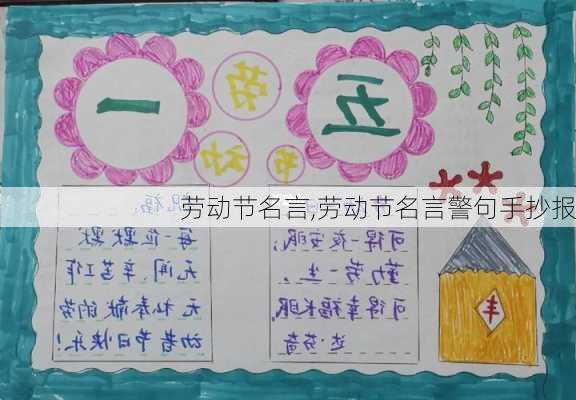 五一
劳动节
劳动节名言,劳动节名言警句手抄报
可得一夜安眠;
勤劳一生,
可得幸福永眠
达·芬奇
祝福:
每一位默默
无闻、辛苦工作
无私奉献的劳
动者节日快乐!
丰